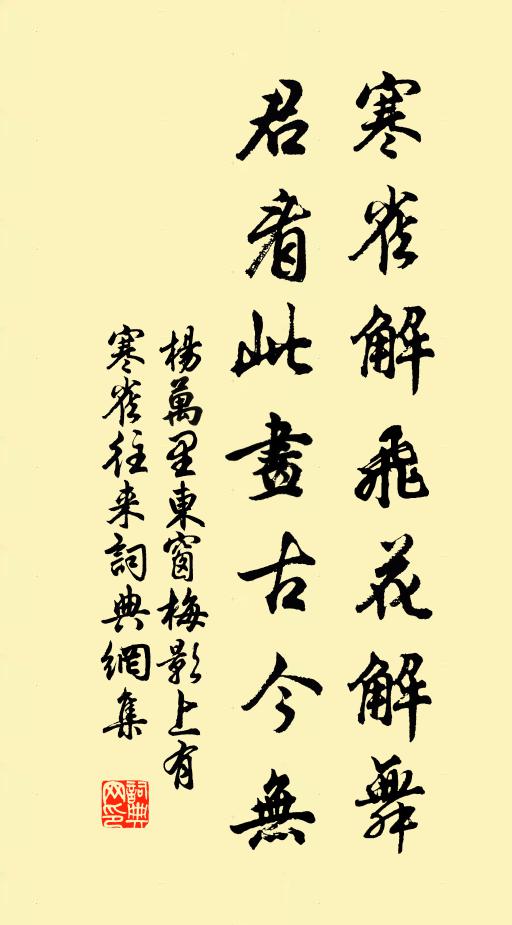 寒雀解飛花解舞
君看此畫古今無
楊萬里東窗梅影上有
寒雀往来詞典網集
詞典
网印